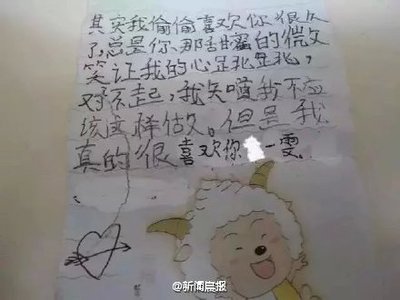 其实我偷偷喜欢你很久
了总是你那甜蜜的微
笑让我的心走乱走乱,
对不起,我知道我不应
该这样做。但是我
真的很喜欢你 一雯
@新闻晨报